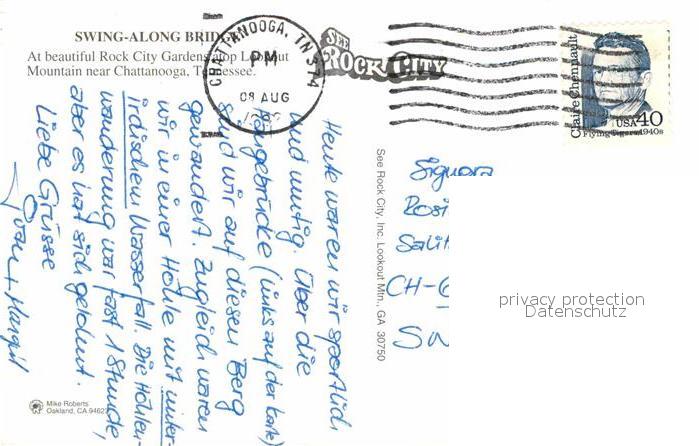 SWING-ALONG BRIDGE
At beautiful Rock City Gardens atop Lookout
Mountain near Chattanooga, Tennessee.
CHATTANOOGA, TN 374
PM
08 AUG
SEE
ROCK CITY
Claire Chennault
USA 40
Flying Tigers, 1940s
Heute waren wir sportlich
und mutig. Über die
Hängebrücke (links auf der Karte)
sind wir auf diesen Berg
gewandert. Zugleich waren
wir in einer Höhle mit unter-
irdischem Wasserfall. Die Höhlen-
wanderung war fast 1 Stunde,
aber es hat sich gelohnt.
Liebe Grüsse
+ Margit
See Rock City, Inc. Lookout Mtn., GA 30750
Signora
Rosi
Salit
CH-6
privacy protection
Datenschutz
Mike Roberts
Oakland, CA 94623